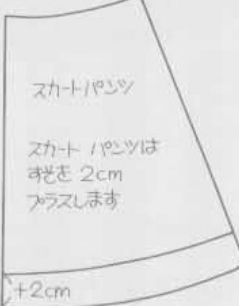 スカートパンツ
スカート パンツは
すそを 2cm
プラスします
+2cm